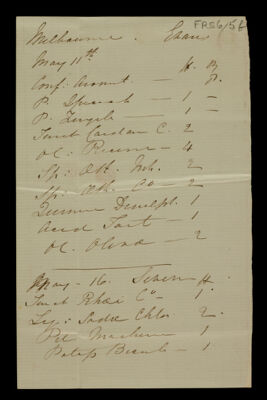 FRS6/56
Melbourne. Evans
May 11th
Conf: Aromat. —
P. Ipecac — 1 —
P. Zingib — 1 —
Tinct Cardam C. 2
Ol: Ricini — 4
Sp: Æth. Nit. 2
Sp: Æth. Co — 2
Quinine Disulph. 1
Acid Tart — 1
Ol. Olivæ — 2
May 16.
Tinct Rhæi Co — 1
Liq: Sodæ Chlor 2.
— 1
Potass Bicarb — 1